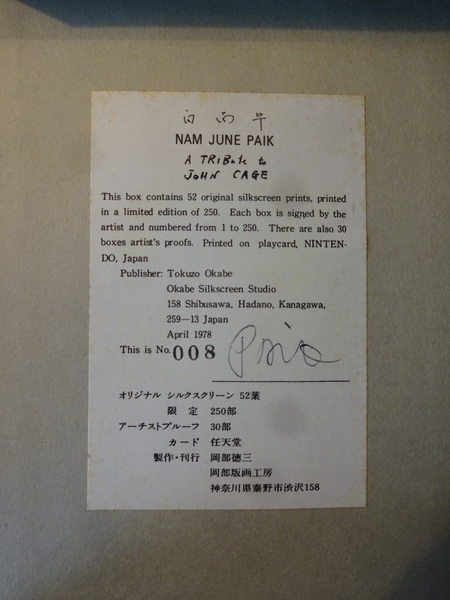 白 南 준
NAM JUNE PAIK
A TRIBute to
JoHN CAGE
This box contains 52 original silkscreen prints, printed
in a limited edition of 250. Each box is signed by the
artist and numbered from 1 to 250. There are also 30
boxes artist's proofs. Printed on playcard, NINTEN-
DO, Japan
Publisher: Tokuzo Okabe
Okabe Silkscreen Studio
158 Shibusawa, Hadano, Kanagawa,
259—13 Japan
April 1978
This is No. 008 Paik
オリジナル シルクスクリーン 52葉
限 定 250部
アーチストプルーフ 30部
カード 任天堂
製作・刊行 岡部徳三
岡部版画工房
神奈川県秦野市渋沢158